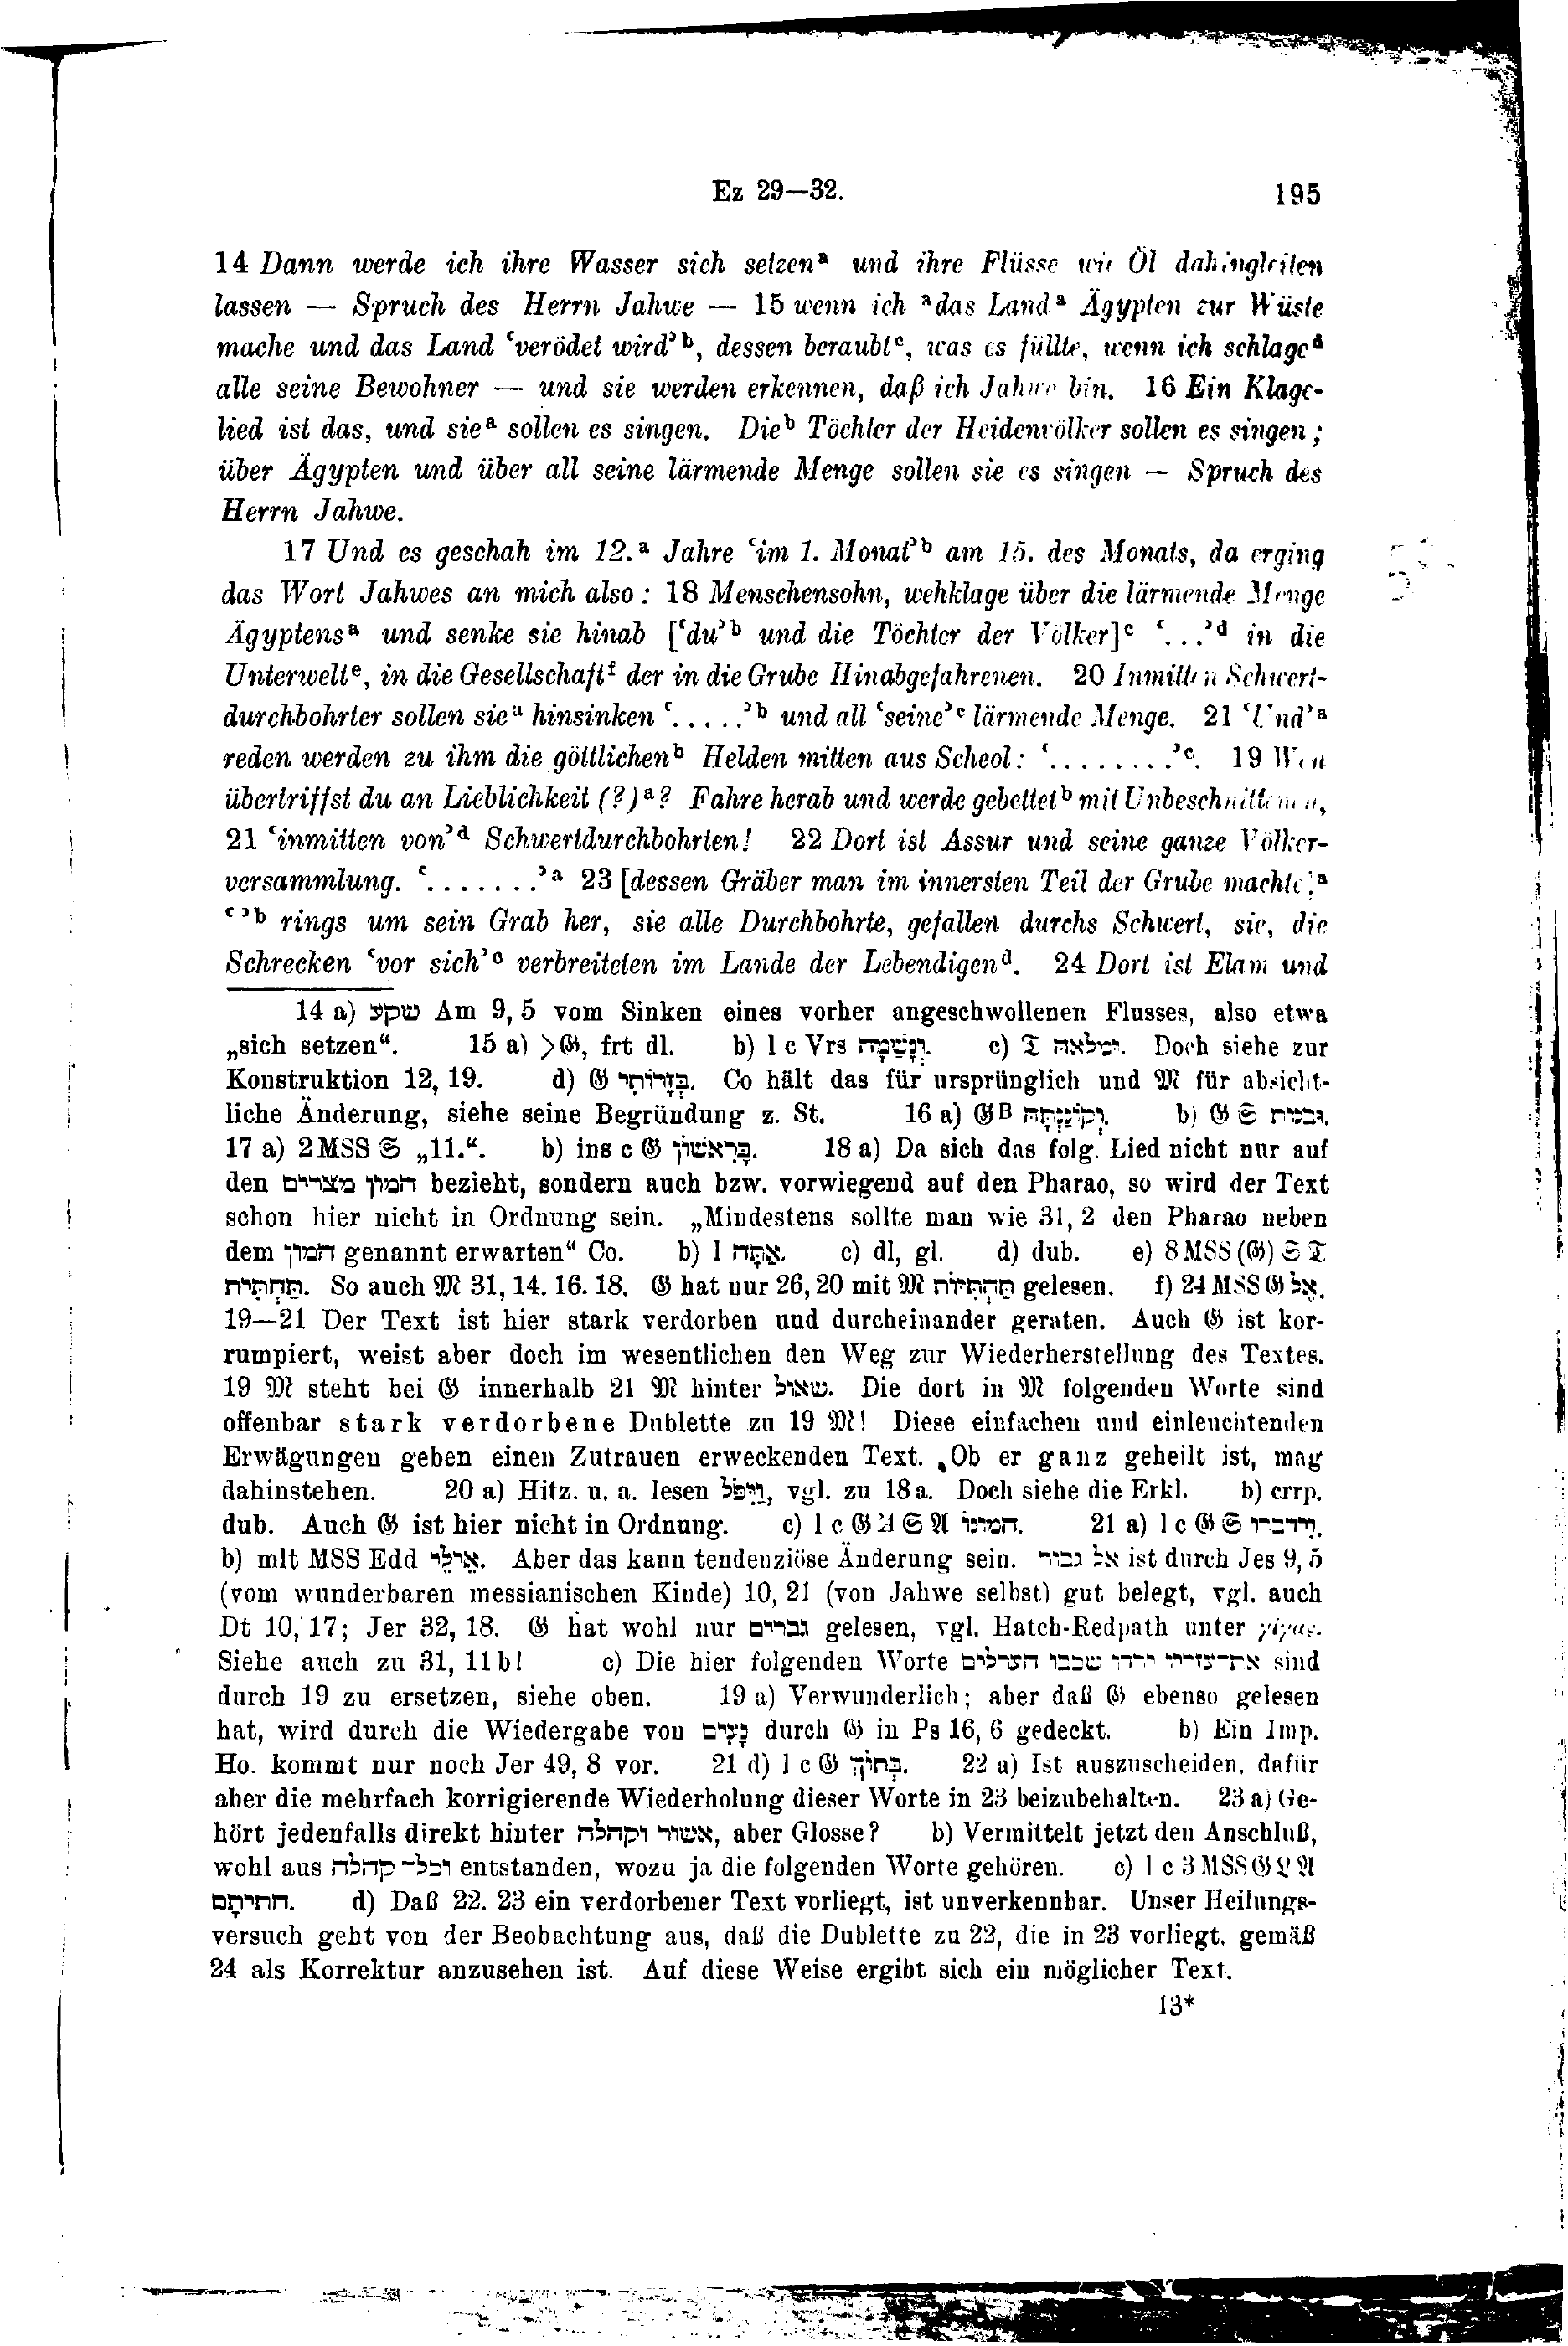 Ez 29—32. 195
14 Dann werde ich ihre Wasser sich setzenᵃ und ihre Flüsse wie Öl dahingleiten
lassen — Spruch des Herrn Jahwe — 15 wenn ich ᵃdas Landᵃ Ägypten zur Wüste
mache und das Land ‘verödet wird’ᵇ, dessen beraubtᶜ, was es füllte, wenn ich schlageᵈ
alle seine Bewohner — und sie werden erkennen, daß ich Jahwe bin. 16 Ein Klage-
lied ist das, und sieᵃ sollen es singen. Dieᵇ Töchter der Heidenvölker sollen es singen;
über Ägypten und über all seine lärmende Menge sollen sie es singen — Spruch des
Herrn Jahwe.
17 Und es geschah im 12.ᵃ Jahre ‘im 1. Monat’ᵇ am 15. des Monats, da erging
das Wort Jahwes an mich also: 18 Menschensohn, wehklage über die lärmende Menge
Ägyptensᵃ und senke sie hinab [‘du’ᵇ und die Töchter der Völker]ᶜ ‘...’ᵈ in die
Unterweltᵉ, in die Gesellschaftᶠ der in die Grube Hinabgefahrenen. 20 Inmitten Schwert-
durchbohrter sollen sieᵃ hinsinken ‘.....’ᵇ und all ‘seine’ᶜ lärmende Menge. 21 ‘Und’ᵃ
reden werden zu ihm die göttlichenᵇ Helden mitten aus Scheol: ‘........’ᶜ. 19 Wen
übertriffst du an Lieblichkeit (?)ᵃ? Fahre herab und werde gebettetᵇ mit Unbeschnittenen,
21 ‘inmitten von’ᵈ Schwertdurchbohrten! 22 Dort ist Assur und seine ganze Völker-
versammlung. ‘.......’ᵃ 23 [dessen Gräber man im innersten Teil der Grube machte]ᵃ
‘ ’ᵇ rings um sein Grab her, sie alle Durchbohrte, gefallen durchs Schwert, sie, die
Schrecken ‘vor sich’ᶜ verbreiteten im Lande der Lebendigenᵈ. 24 Dort ist Elam und
14 a) שקע Am 9, 5 vom Sinken eines vorher angeschwollenen Flusses, also etwa
„sich setzen“. 15 a) >𝔊, frt dl. b) l c Vrs וְנָשַׁמָּה. c) 𝔗 ומלאה. Doch siehe zur
Konstruktion 12, 19. d) 𝔊 בְּזָרוֹתִי. Co hält das für ursprünglich und 𝔐 für absicht-
liche Änderung, siehe seine Begründung z. St. 16 a) 𝔊ᴮ וְקוֹנַנְתָּהּ. b) 𝔊 𝔖 ובנות.
17 a) 2 MSS 𝔖 „11.“. b) ins c 𝔊 בָּרִאשׁוֹן. 18 a) Da sich das folg. Lied nicht nur auf
den המון מצרים bezieht, sondern auch bzw. vorwiegend auf den Pharao, so wird der Text
schon hier nicht in Ordnung sein. „Mindestens sollte man wie 31, 2 den Pharao neben
dem המון genannt erwarten“ Co. b) l אַתָּה. c) dl, gl. d) dub. e) 8 MSS (𝔊) 𝔖 𝔗
תַּחְתִּית. So auch 𝔐 31, 14. 16. 18. 𝔊 hat nur 26, 20 mit 𝔐 תַּחְתִּיּוֹת gelesen. f) 24 MSS 𝔊 אֶל.
19—21 Der Text ist hier stark verdorben und durcheinander geraten. Auch 𝔊 ist kor-
rumpiert, weist aber doch im wesentlichen den Weg zur Wiederherstellung des Textes.
19 𝔐 steht bei 𝔊 innerhalb 21 𝔐 hinter שאול. Die dort in 𝔐 folgenden Worte sind
offenbar stark verdorbene Dublette zu 19 𝔐! Diese einfachen und einleuchtenden
Erwägungen geben einen Zutrauen erweckenden Text. Ob er ganz geheilt ist, mag
dahinstehen. 20 a) Hitz. u. a. lesen וְיִפֹּל, vgl. zu 18 a. Doch siehe die Erkl. b) crrp.
dub. Auch 𝔊 ist hier nicht in Ordnung. c) l c 𝔊 Α 𝔖 𝔄 המונו. 21 a) l c 𝔊 𝔖 וידברו.
b) mlt MSS Edd אֵילֵי. Aber das kann tendenziöse Änderung sein. אל גבור ist durch Jes 9, 5
(vom wunderbaren messianischen Kinde) 10, 21 (von Jahwe selbst) gut belegt, vgl. auch
Dt 10, 17; Jer 32, 18. 𝔊 hat wohl nur גברים gelesen, vgl. Hatch-Redpath unter γίγας.
Siehe auch zu 31, 11 b! c) Die hier folgenden Worte את־עזריו ירדו שכבו הערלים sind
durch 19 zu ersetzen, siehe oben. 19 a) Verwunderlich; aber daß 𝔊 ebenso gelesen
hat, wird durch die Wiedergabe von נָעִים durch 𝔊 in Ps 16, 6 gedeckt. b) Ein Imp.
Ho. kommt nur noch Jer 49, 8 vor. 21 d) l c 𝔊 בְּתוֹךְ. 22 a) Ist auszuscheiden, dafür
aber die mehrfach korrigierende Wiederholung dieser Worte in 23 beizubehalten. 23 a) Ge-
hört jedenfalls direkt hinter אשור וקהלה, aber Glosse? b) Vermittelt jetzt den Anschluß,
wohl aus וכל־ קהלה entstanden, wozu ja die folgenden Worte gehören. c) l c 3 MSS 𝔊 𝔏 𝔄
חתיתָם. d) Daß 22. 23 ein verdorbener Text vorliegt, ist unverkennbar. Unser Heilungs-
versuch geht von der Beobachtung aus, daß die Dublette zu 22, die in 23 vorliegt, gemäß
24 als Korrektur anzusehen ist. Auf diese Weise ergibt sich ein möglicher Text.
13*